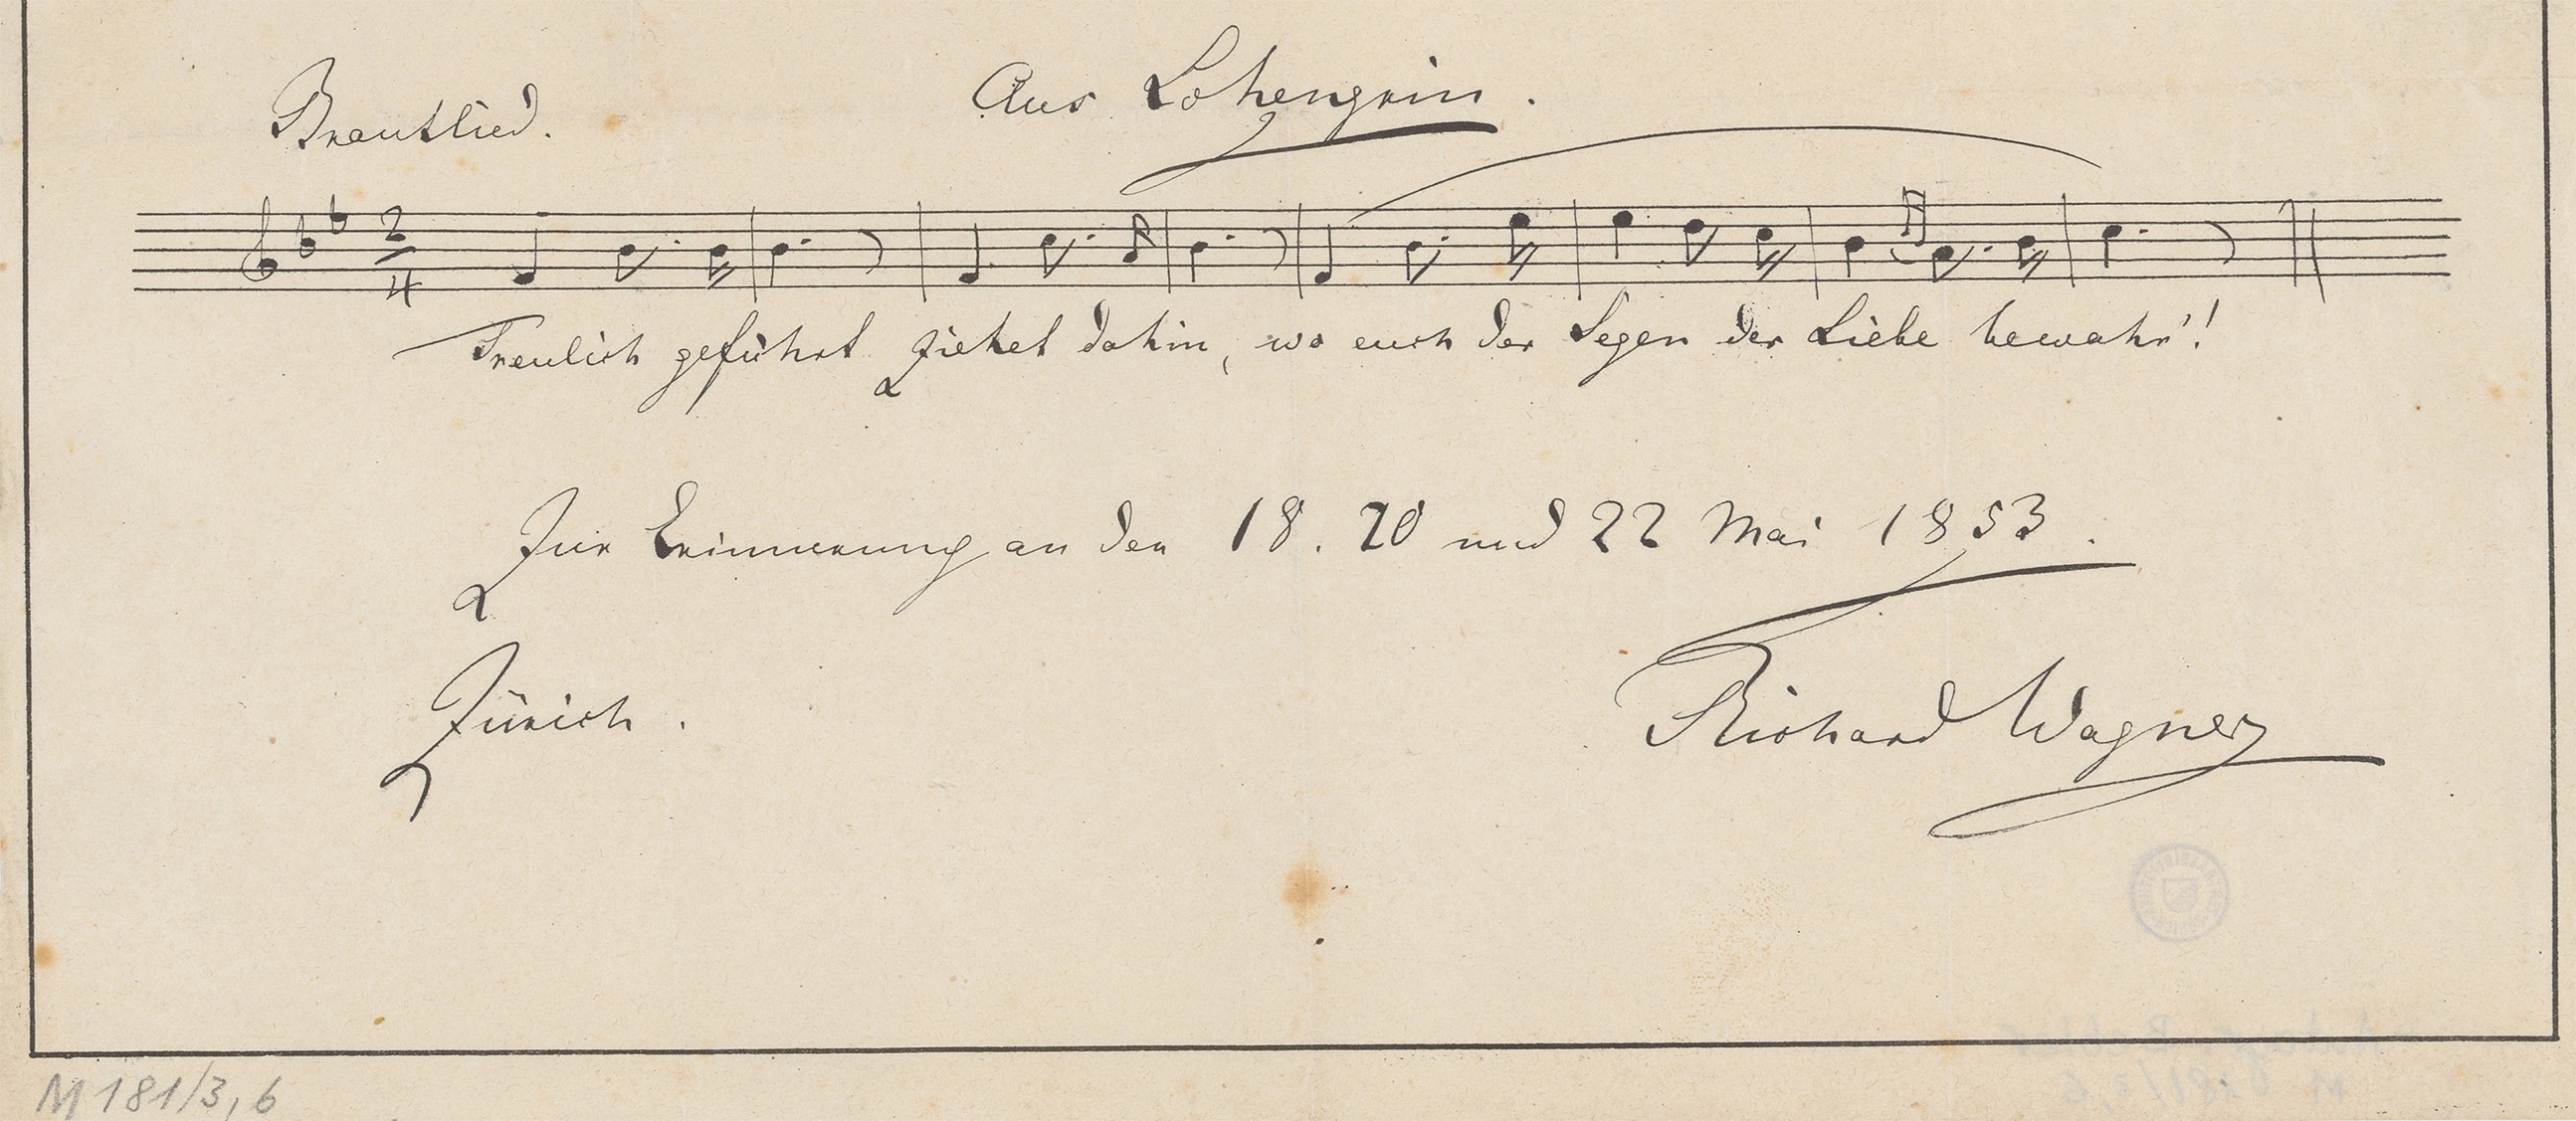 Aus Lohengrin.
Brautlied.
2
4
Treulich geführt ziehet dahin, wo euch der Segen der Liebe bewahr'!
Zur Erinnerung an den 18. 20 und 22 Mai 1853.
Zürich.
Richard Wagner
M 181/3, 6